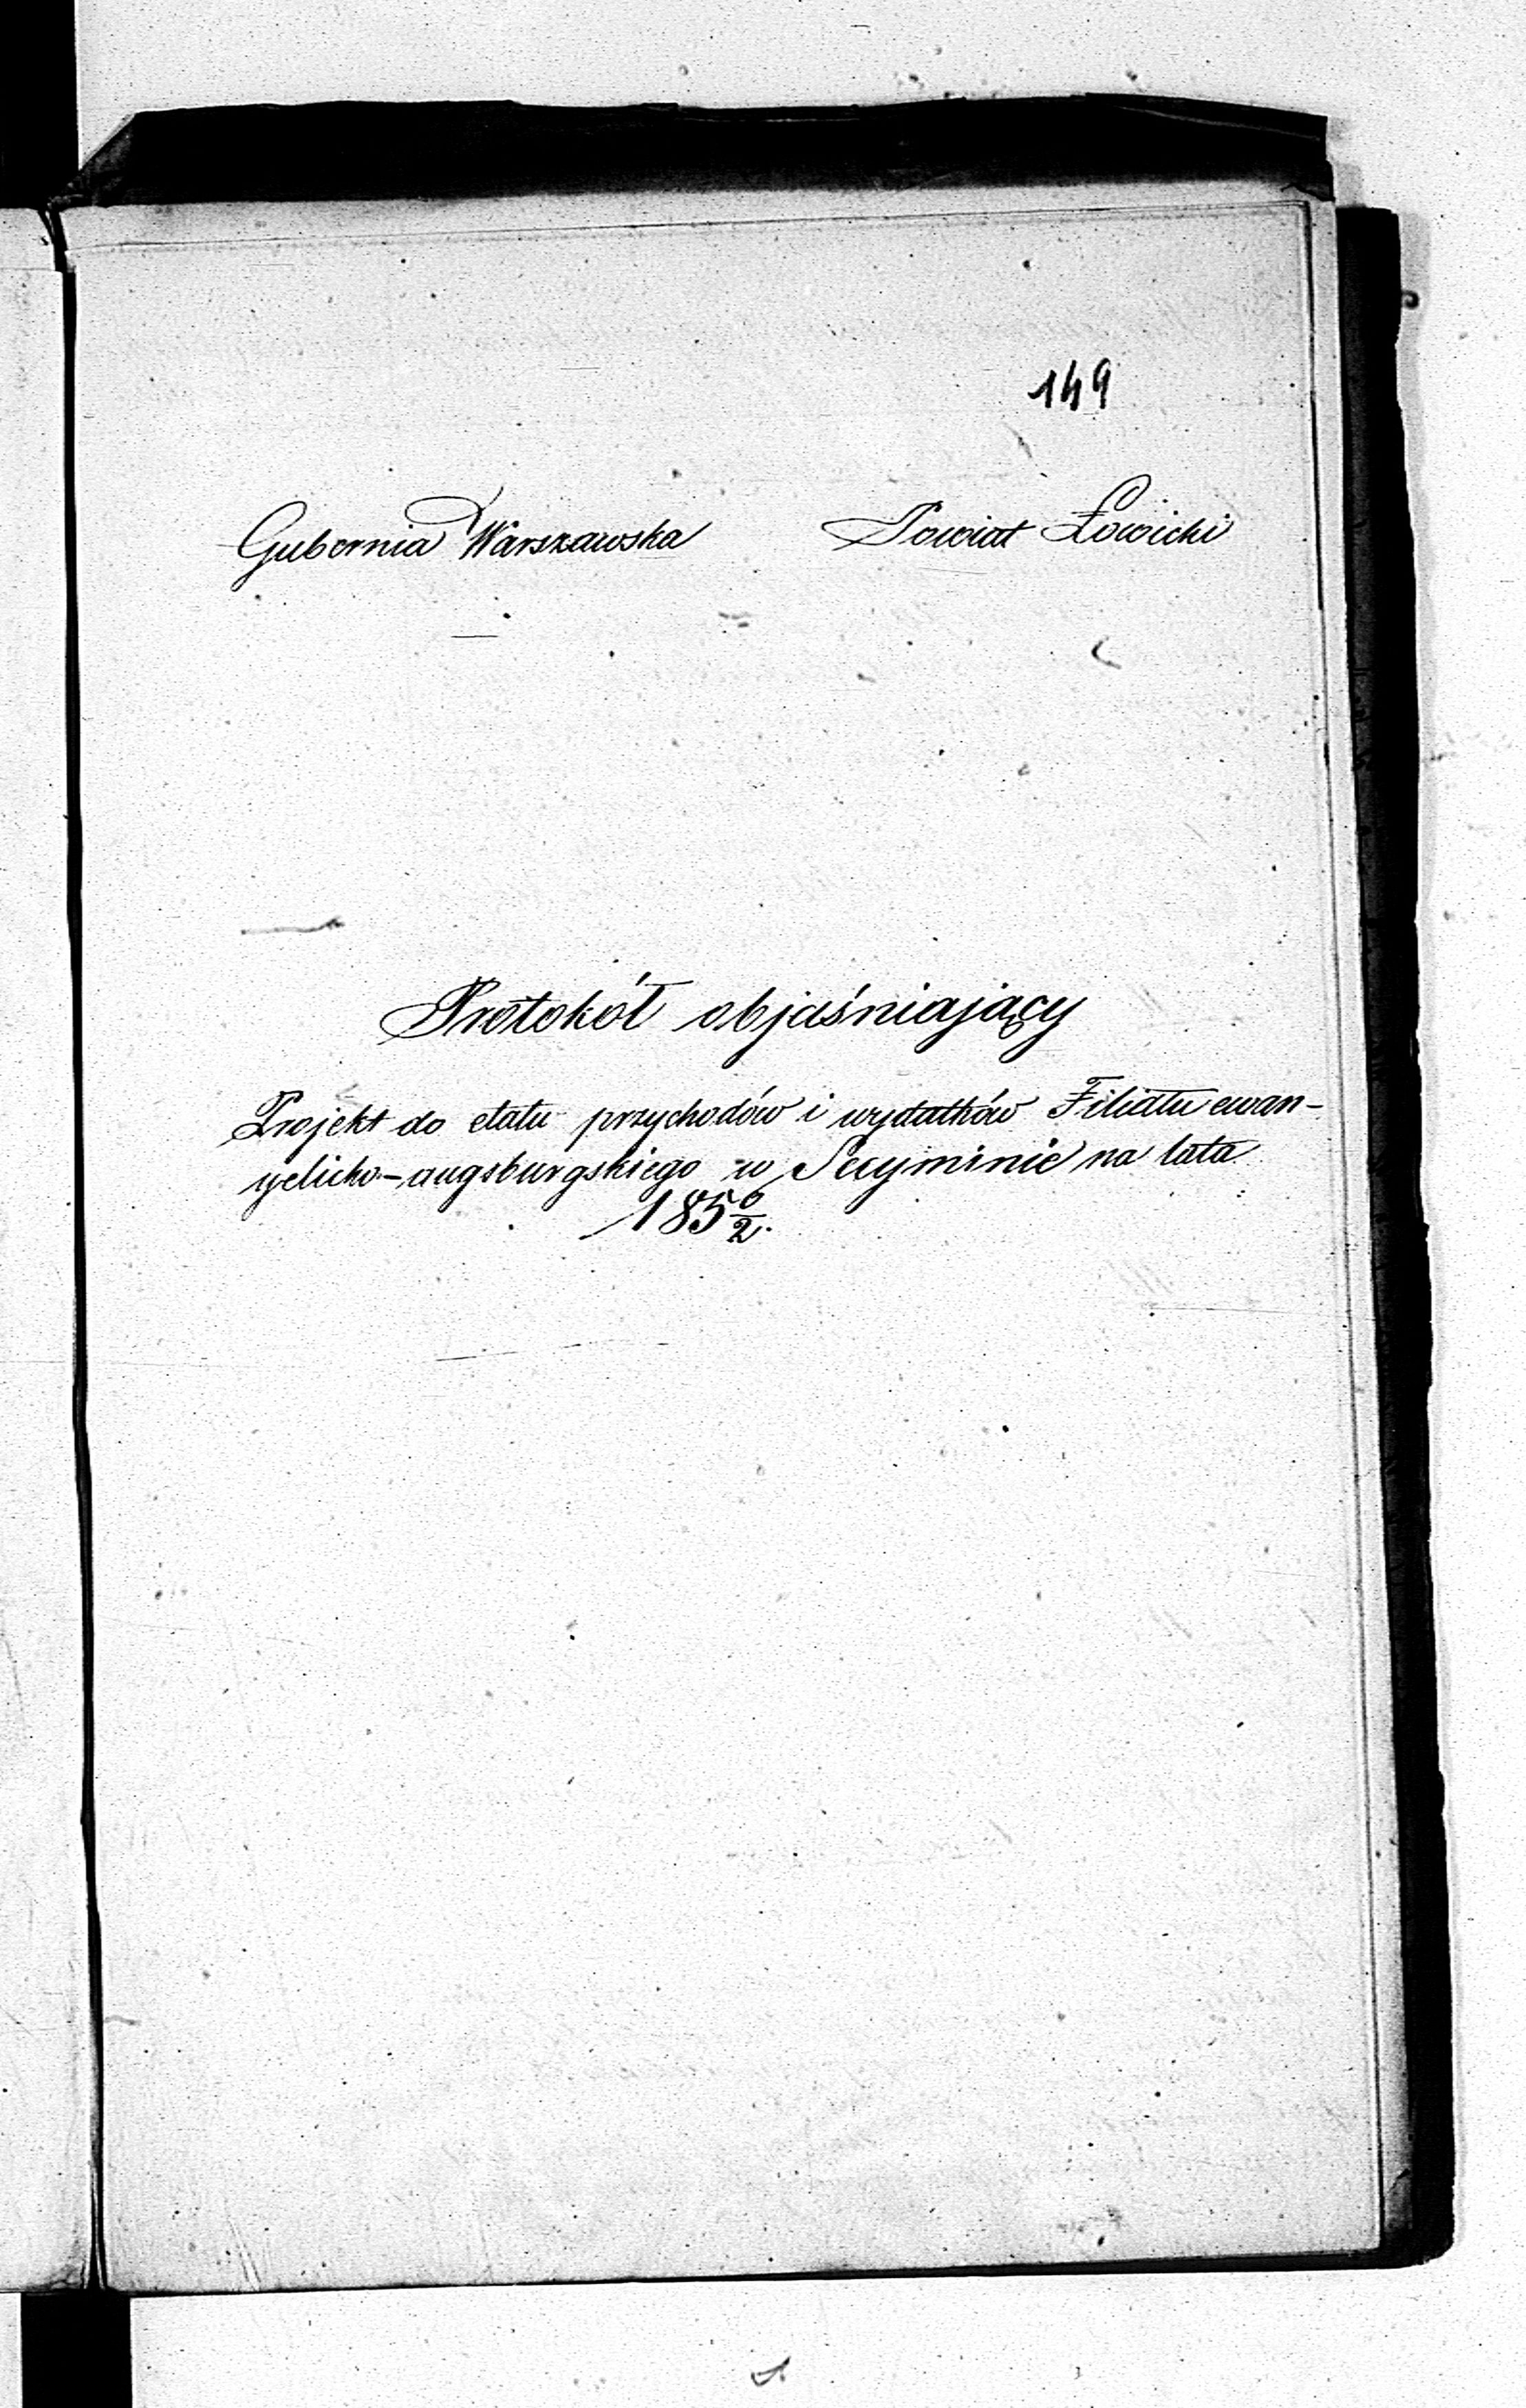 149
Gubernia Warszawska Powiat Łowicki
Protokół objaśniający
Projekt do etatu przychodów i wydatków Filiału ewan-
gelicko-augsburgskiego w Secyminie na lata
185 0/2.